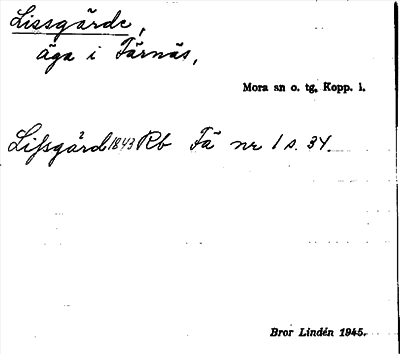 Lissgärde,
äga i Färnäs,
Mora sn o. tg, Kopp. l.
Lissgård 1843 Rb Fä nr 1 s. 34.
Bror Lindén 1945.